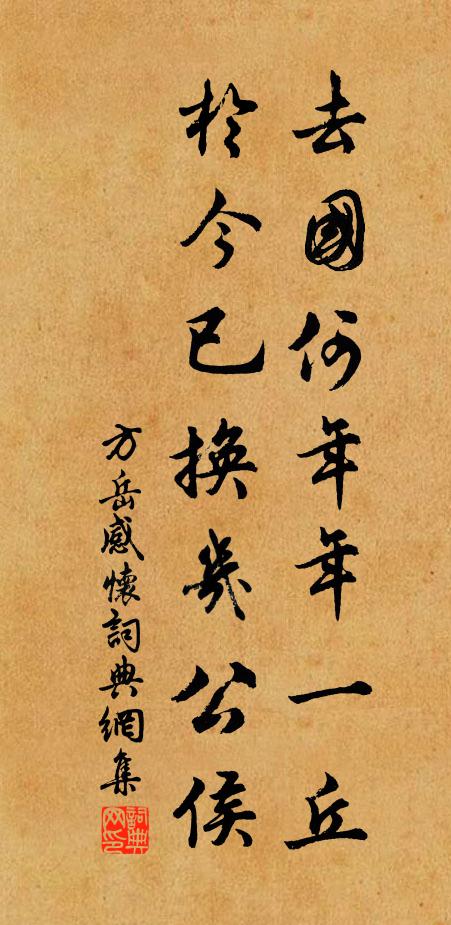 去國何年年一丘
於今已換幾公侯
方岳感懷詞典網集
詞典网印